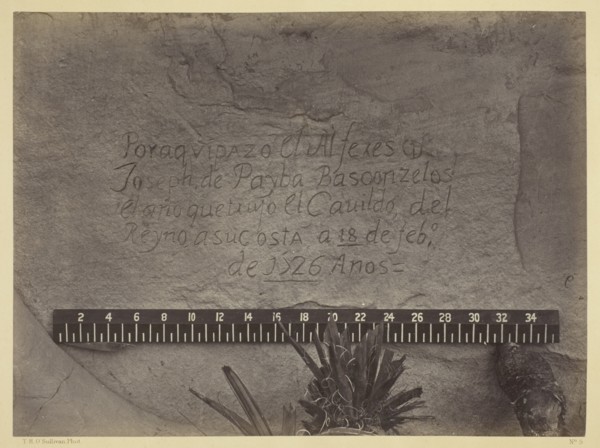 Por aqui pazo el Alferes Dn.
Joseph de Payba Basconzelos
el año que tuvo el Cauildo del
Reyno a su costa a 18 de feb.o
de 1526 Años=
2 4 6 8 10 12 14 16 18 20 22 24 26 28 30 32 34
T. H. O'Sullivan Phot.
No.